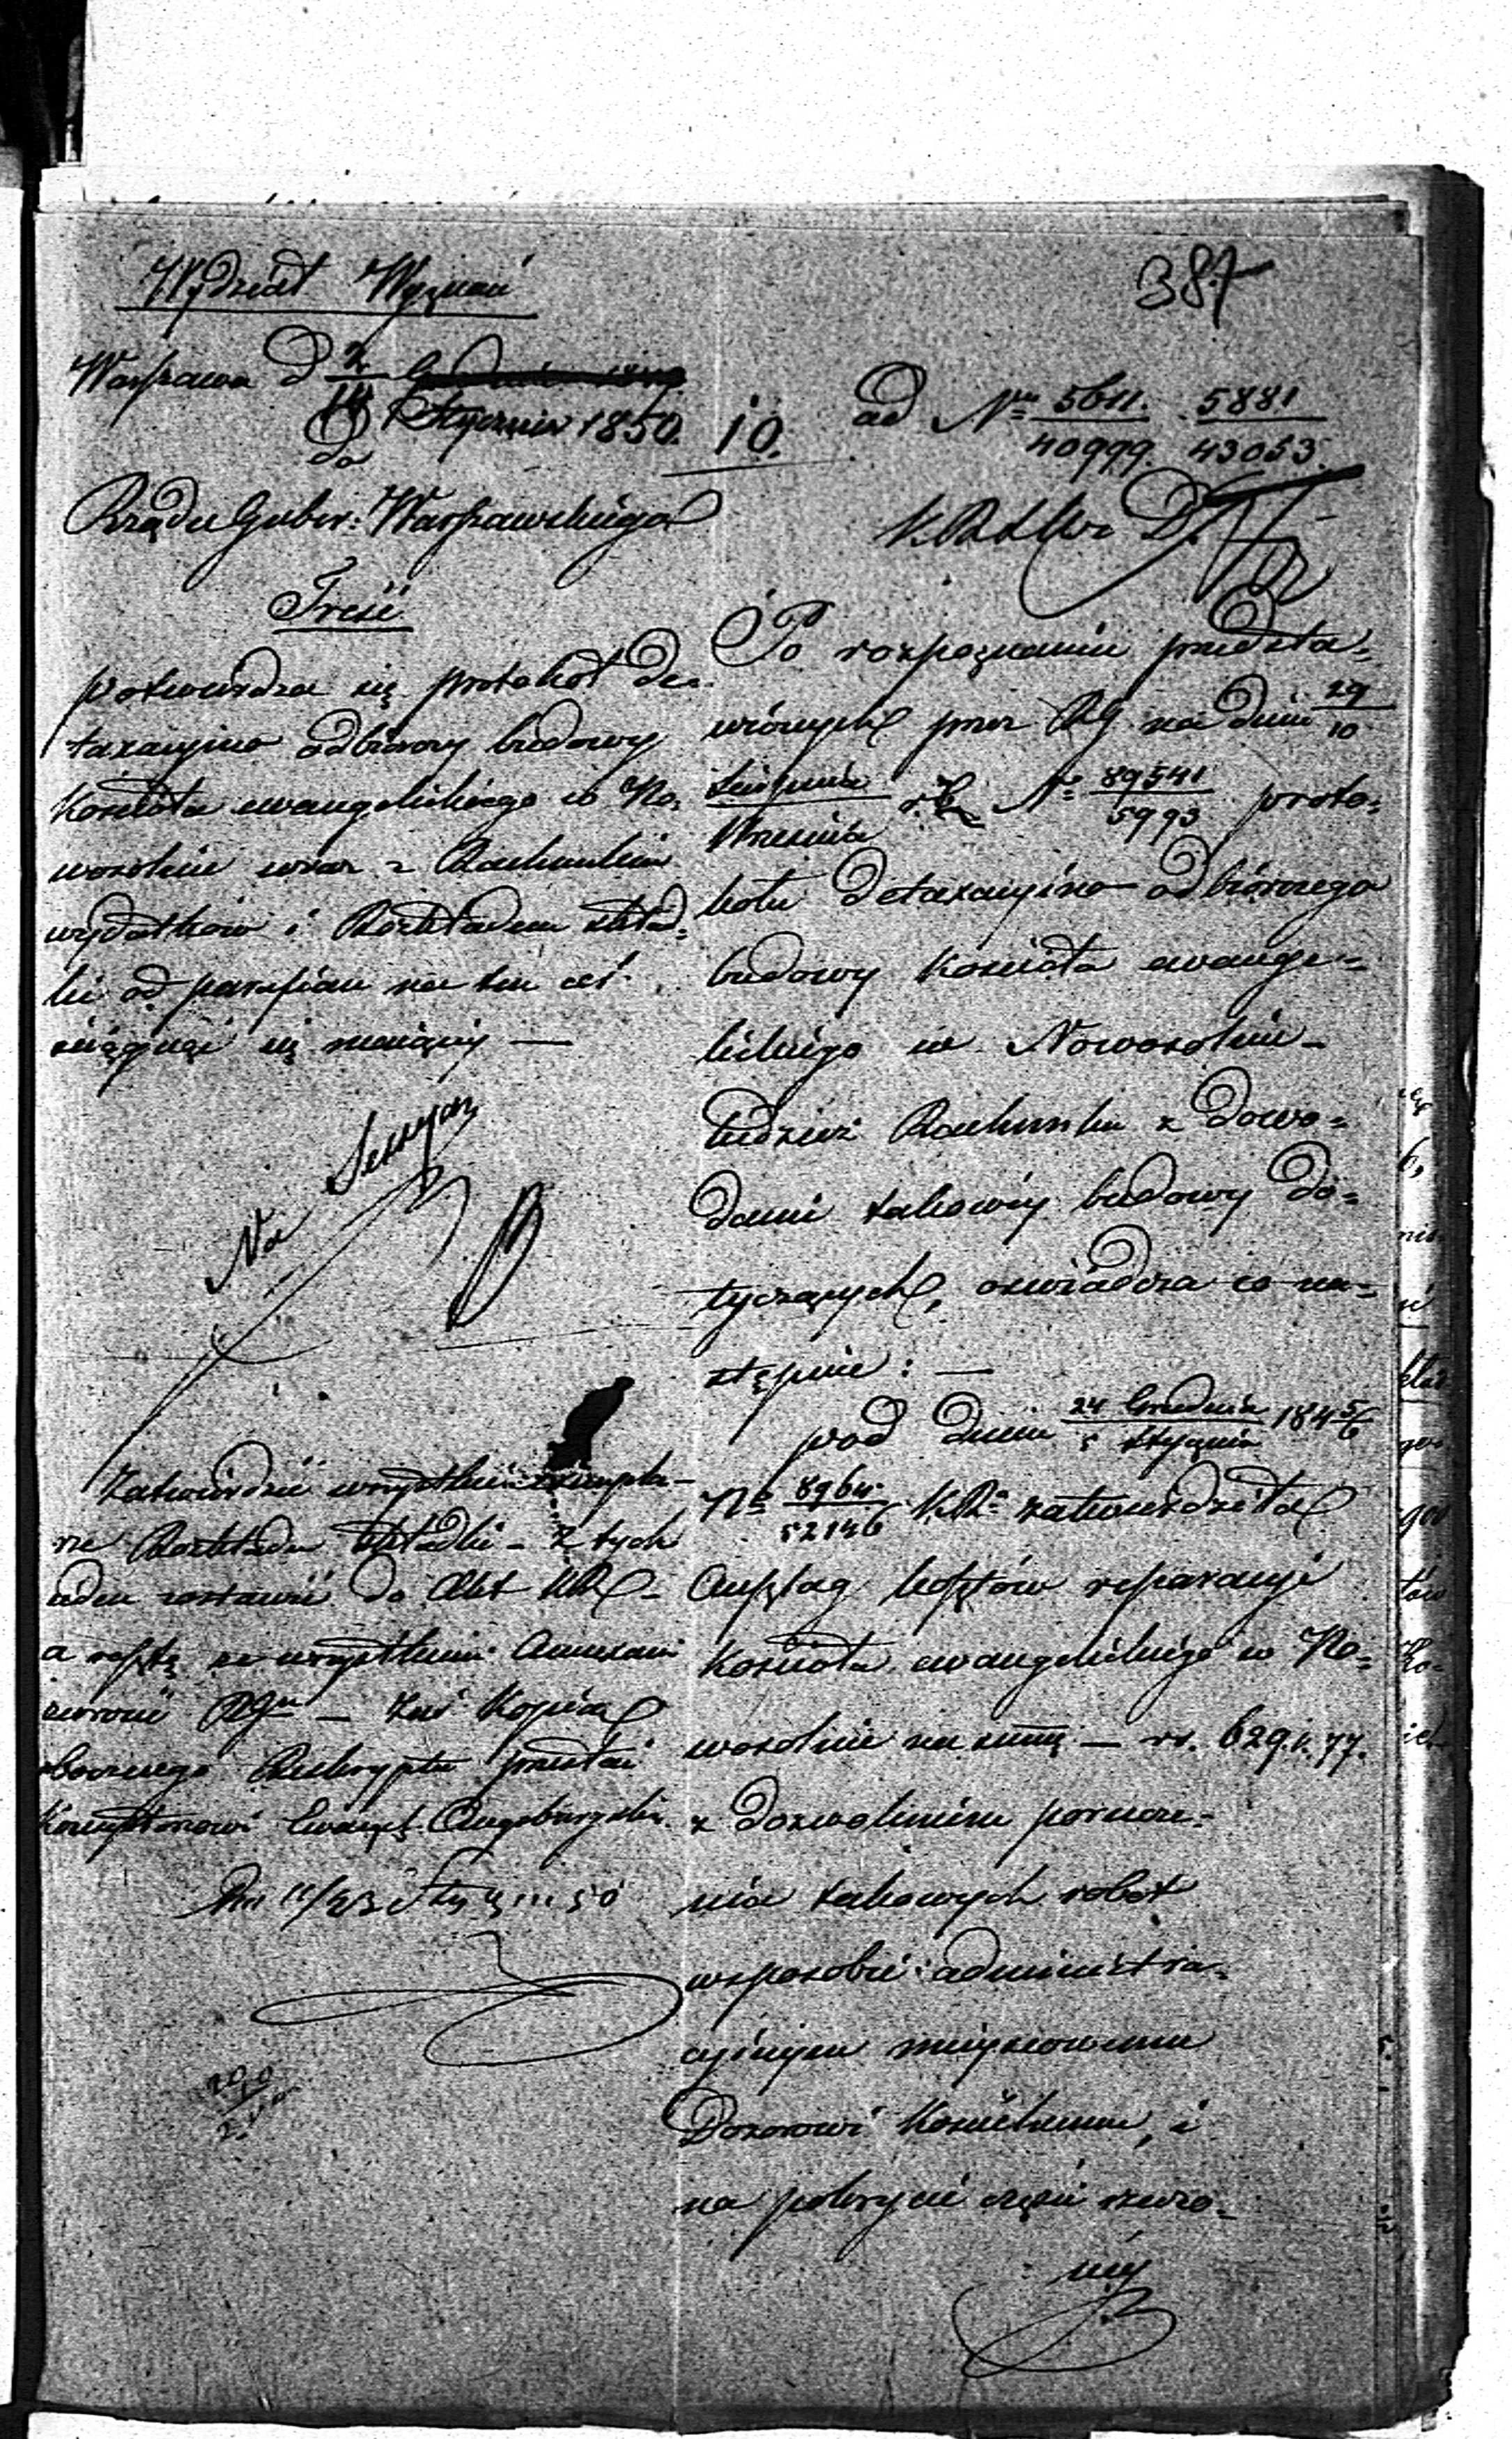 387
Wydział Wyznań
Warszawa d 2/14 Stycznia 1850.
10.
ad Nr 5611./40999. 5881/43053.
do
Rządu Guber: Warszawskiego
Treść
potwierdza się protokół de=
taxacyjno odbiorczy budowy
Kościoła ewangelickiego w No=
wosolnie wraz z Rachunkiem
wydatków i Rozkładem skład=
ki od parafian na ten cel
ściągnąć się mającej —
Na Sessyą
Zatwierdzić wszystkie exempla-
rze Rozkładu składki - z tych
jeden zostawić do Akt KR -
a resztę ze wszystkimi Annexami
zwrócić RGu — zaś Kopią
obocznego Reskryptu przesłać
Konsystorzowi Ewangel. Augsburgskie.
Dn 11/23 Stycz 50
Po rozpoznaniu przedsta=
wionych przez RG. na dniu 29/10
Sierpnia/Września r. b. No 89541/5993 proto=
kołu detaxacyjno odbiorczego
budowy Kościoła ewange=
lickiego w Nowosolnie -
tudzież Rachunku z dowo=
dami takowéj budowy do=
tyczących, oświadcza co na=
stępuie : —
pod dniem 24 Grudnia/5 Stycznia 1845/6
No 8964./52146 KR. zatwierdziła
Anszlag kosztów reparacyi
Kościoła ewangelickiego w No=
wosolnie na summę — rs. 629 k. 77.
z dozwoleniem porucze=
nia takowych robot
wsposobie administra=
cyjnym miejscowemu
Dozorowi Kościelnemu, i
na pokrycie części rzeczo=
néj